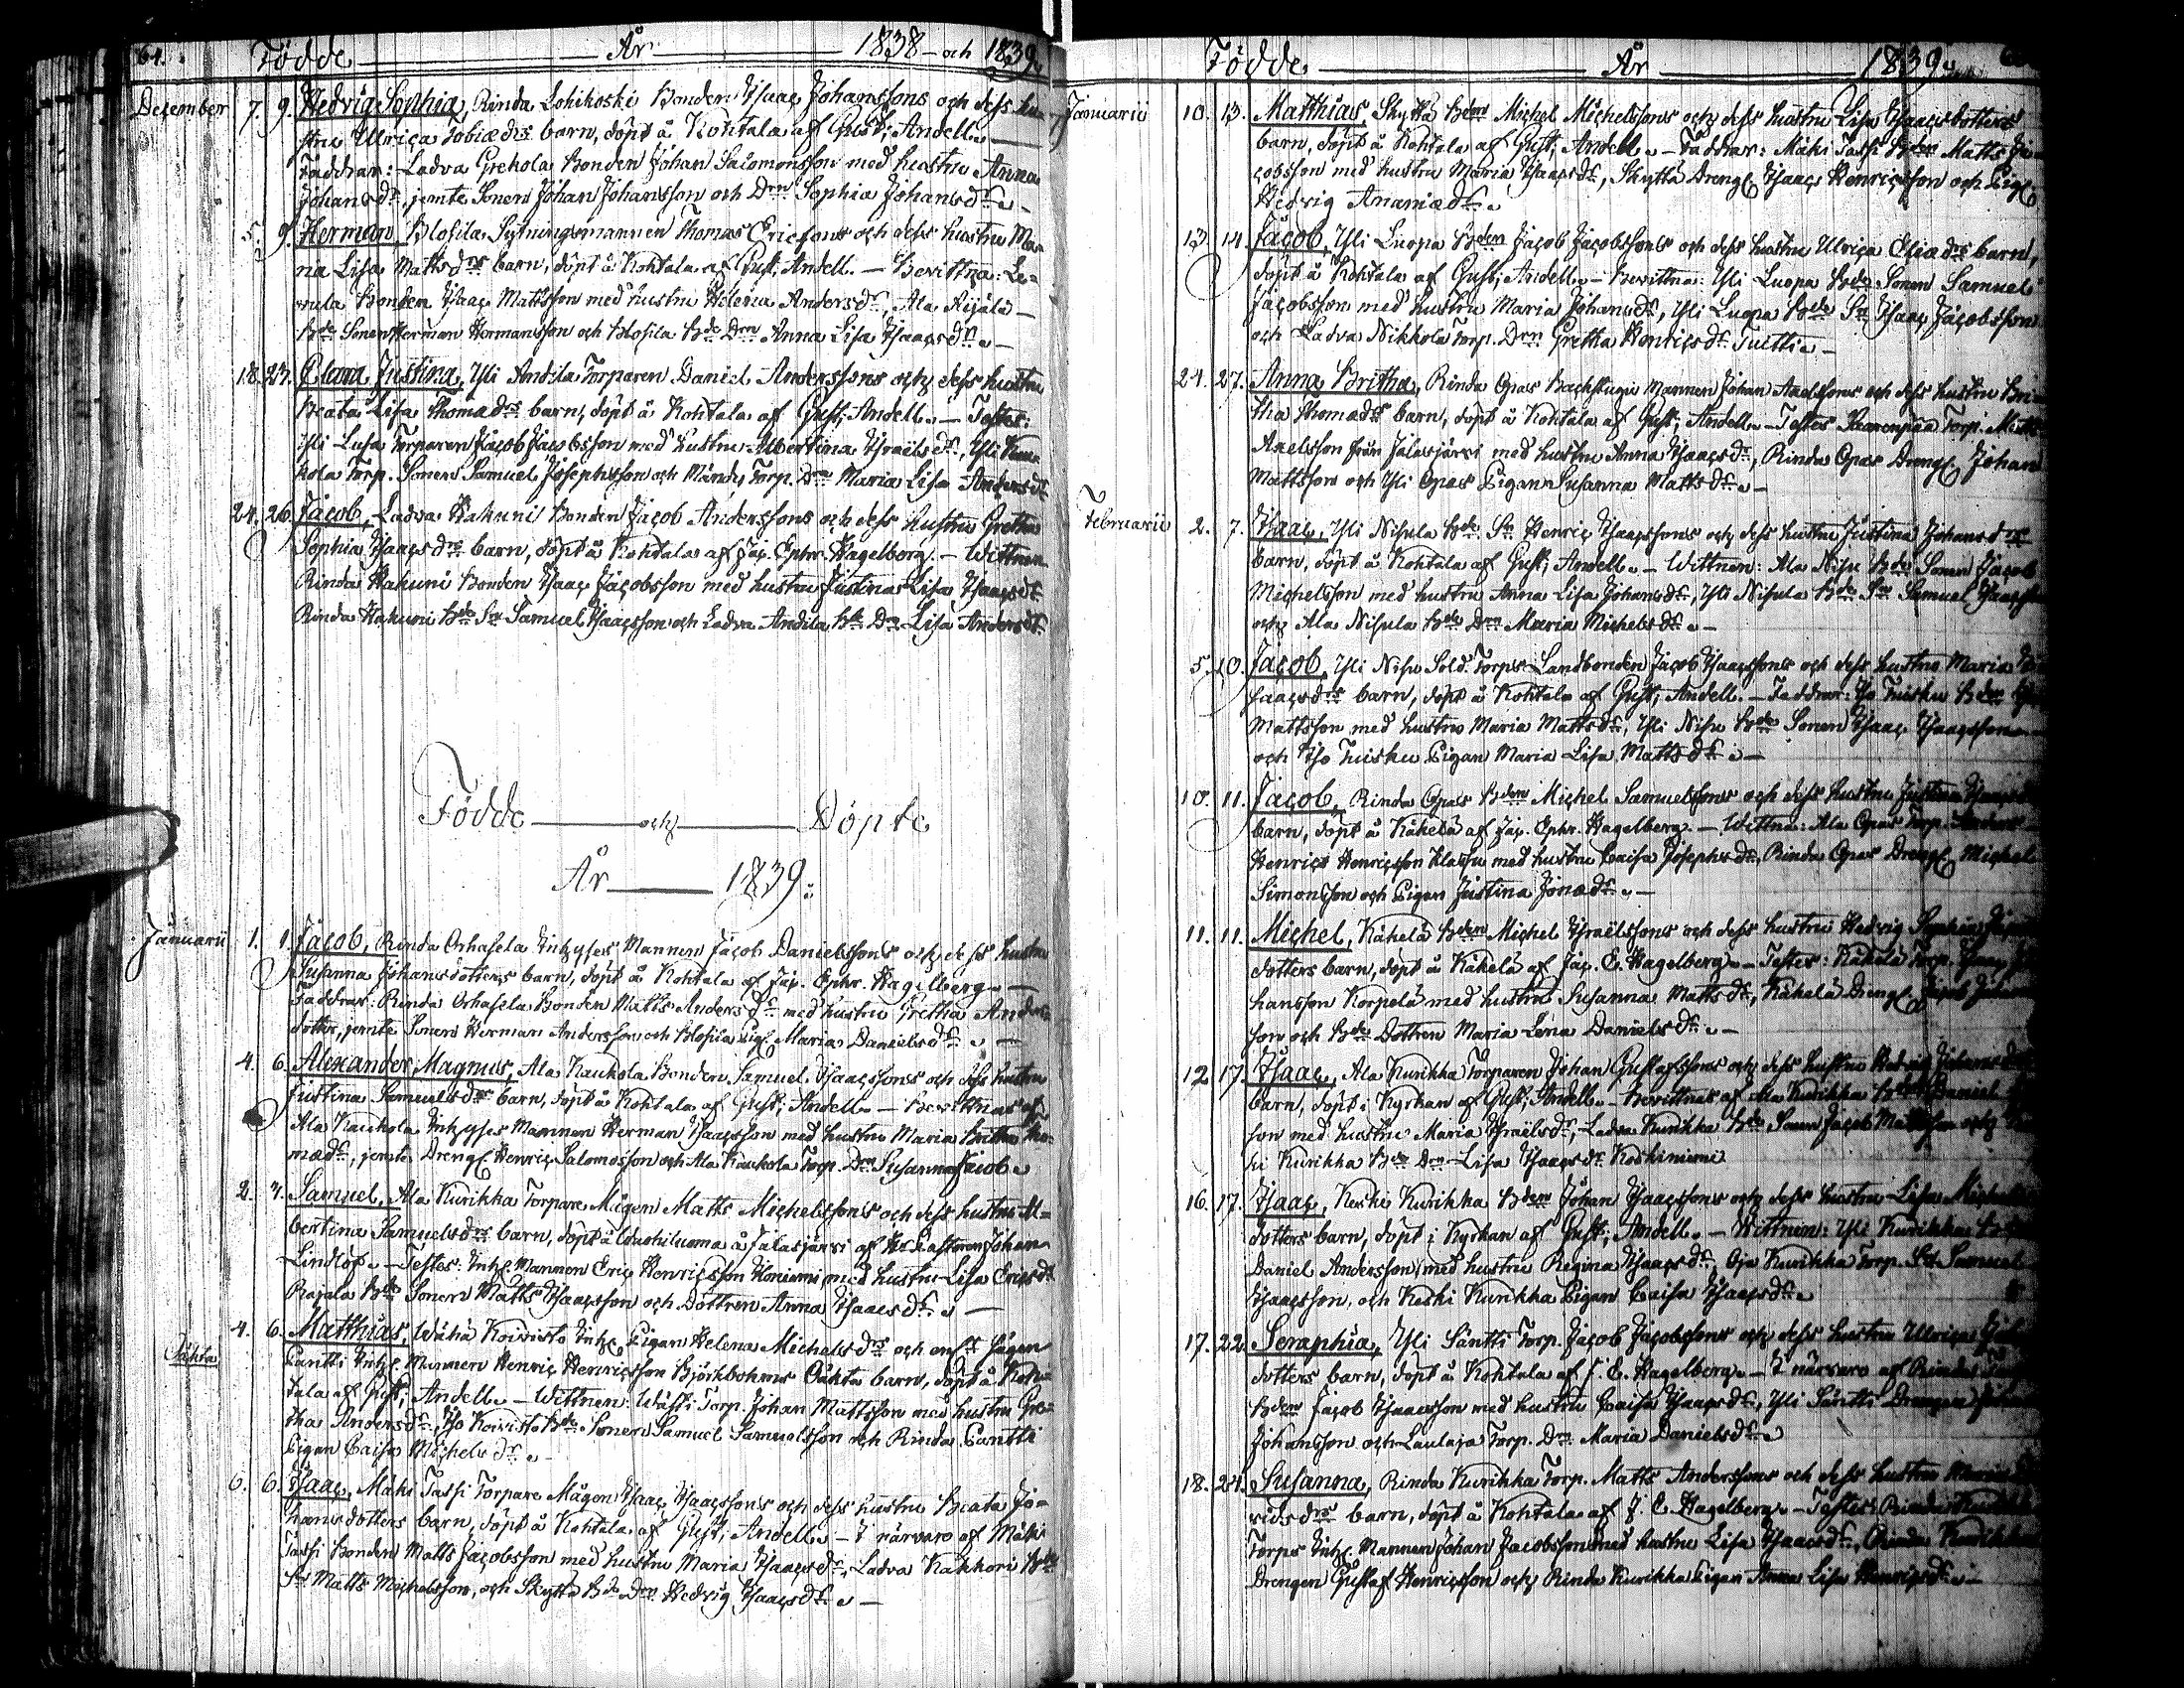 64. Födde År 1838 och 1839.
December 7. 9. Hedvig Sophia, Rinda Lohikoski Bonden Isaac Johanssons och dess hu-
stru Ulrica Tobiædrs barn, döpt å Kohtala af Gust; Andell. —
Faddrar: Ladva Grekola Bonden Johan Salomonsson med hustru Anna
Johansdr, jemte Sonen Johan Johansson och Drn Sophia Johansdr. —
5. 9. Herman, Blofila Sytningsmannen Thomas Ericssons och dess hustru Ma-
ria Lisa Mattsdrs barn, döpt å Kohtala af Gust; Andell. — Bevittna: Le-
rula Bonden Isaac Mattsson med hustru Helena Andersdr, Ala
Bde Sonen Herman Hermansson och Blofila Bde Drn Anna Lisa Isaacsdr. —
18. 23. Clara Justina, Yli Andila Torparen Daniel Anderssons och dess hustru
Beata Lisa Thomædrs barn, döpt å Kohtala af Gust; Andell. — Testes:
Yli Lusa Torparen Jacob Jacobsson med hustru Albertina Israelsdr, Yli
kola Torp. Sonen Samuel Josephsson och Torp. Drn Maria Lisa Andersdr
24. 26. Jacob, Ladva Hakuni Bonden Jacob Anderssons och dess hustru Gretha
Sophia Isaacsdrs barn, döpt å Kohtala af Jac. Ephr. Hagelberg. — Wittnen
Rinda Hakuni Bonden Isaac Jacobsson med hustru Justina Lisa Isaacsdr
Rinda Hakuni Bde Sn Samuel Isaacsson och Ladva Andila Bde Drn Lisa Andersdr
Födde och Döpte
År 1839.
Januarii 1. 1. Jacob, Rinda Orhasela Inhyses Mannen Jacob Danielssons och dess hustru
Susanna Johansdotters barn, döpt å Kohtala af Jac. Ephr. Hagelberg. —
Faddrar: Rinda Orhasela Bonden Matts Andersdr med hustru Gretha Anders-
dotter, jemte Sonen Herman Andersson och Blofila Pig. Maria Danielsdr. —
4. 6. Alexander Magnus, Ala Kaukola Bonden Samuel Isaacssons och dess hustru
Justina Samuelsdrs barn, döpt å Kohtala af Gust; Andell. — Bevittnas af
Ala Kaukola Inhyses Mannen Herman Isaacsson med hustru Maria Britha Tho-
mædr, jemte Dreng. Henric Salomosson och Ala Kaukola Torp. Drn Susanna Jacob.
2. 4. Samuel, Ala Kurikka Torpare Mågen Matts Michelssons och dess hustru Al-
bertina Samuelsdrs barn, döpt å å Jalasjärvi af Johan
Lindlöf. — Testes: Inh. Mannen Eric Henricsson Koniemi med hustru Lisa Ericsdr
Rajala Bde Sonen Matts Isaacsson och Dottren Anna Isaacsdr. —
4. 6. Matthias, Wähä Koivisto Inh. Pigan Helena Michelsdrs och
Oäkta Pantti Inh. Mannen Henric Henricsson Björkboms Oäkta barn, döpt å Koh-
tala af Gust; Andell. — Wittnen: Wästi Torp. Johan Mattsson med hustru Gre-
tha Andersdr, Iso Koivisto Bde Sonen Samuel Samuelsson och Rinda Pantti
Pigan Caisa Michelsdr. —
6. 6. Isaac, Mäki Tassi Torpare Mågen Isaac Isaacssons och dess hustru Beata Jo-
hansdotters barn, döpt å Kohtala af Gust; Andell. — I närvaro af Mäki
Tassi Bonden Matts Jacobsson med hustru Maria Isaacsdr, Ladva Kakkori Bde
Sn Matts Michelsson, och Skyttä Bde Drn Hedvig Isaacsdr. —
Födde År 1839.
Januarii 10. 13. Matthias, Skyttä Bden Michel Michelssons och dess hustru Lisa Isaacsdotters
barn, döpt å Kohtala af Gust; Andell. — Faddrar: Mäki Tassi Bden Matts Ja-
cobsson med hustru Maria Isaacsdr, Skyttä Dreng. Isaac Henricsson och Pig.
Hedvig Ananiædr.
13. 14. Jacob, Yli Luopa Bden Jacob Jacobssons och dess hustru Ulrica Eliædrs barn,
döpt å Kohtala af Gust; Andell. — Bevittna: Yli Luopa Bde Sonen Samuel
Jacobsson med hustru Maria Johansdr, Yli Luopa Bde Sn Isaac Jacobsson
och Ladva Nikkola Torp. Drn Gretha Henricsdr Tuitti. —
24. 27. Anna Britha, Rinda Opas Backstugu Mannen Johan Axelssons och dess hustru Bri-
tha Thomædrs barn, döpt å Kohtala af Gust; Andell. — Testes Torp. Matts
Axelsson från Jalasjärvi med hustru Anna Isaacsdr, Rinda Opas Dreng. Johan
Mattsson och Yli Opas Pigan Susanna Mattsdr. —
Februarii 2. 7. Isaac, Yli Nisula Bde Sn Henric Isaacssons och dess hustru Justina Johansdrs
barn, döpt å Kohtala af Gust; Andell. — Wittnen: Ala Nisu Bde Sonen Jacob
Michelsson med hustru Anna Lisa Johansdr, Yli Nisula Bde Sn Samuel Isaacsson
och Ala Nisula Bde Drn Maria Michelsdr. —
5. 10. Jacob, Yli Nisu Sold. Torps Landbonden Jacob Isaacssons och dess hustru Maria
saacsdrs barn, döpt å Kohtala af Gust; Andell. — Faddrar: Iso Tuisku Bden
Mattsson med hustru Maria Mattsdr, Yli Nisu Bde Sonen Isaac Isaacsson
och Iso Tuisku Pigan Maria Lisa Mattsdr. —
10. 11. Jacob, Rinda Opas Bden Michel Samuelssons och dess hustru Justina
barn, döpt å Käkelä af Jac. Ephr. Hagelberg. — Wittna: Ala Opas Torp.
Henric Henricsson Klassu med hustru Caisa Josephsdr, Rinda Opas Dreng. Michel
Simonsson och Pigan Justina Jonædr. —
11. 11. Michel, Käkelä Bden Michel Israelssons och dess hustru Hedvig Sophia
dotters barn, döpt å Käkelä af Jac. E. Hagelberg. — Testes: Käkelä Torp. Isaac Jo-
hansson Korpelä med hustru Susanna Mattsdr, Käkelä Dreng.
son och Bde Dottren Maria Lena Danielsdr. —
12 17. Isaac, Ala Kurikka Torparen Johan Gustafssons och dess hustru Hedvig
barn, döpt i Kyrkan af Gust; Andell. — Bevittnas af Ala Kurikka Bden Daniel
son med hustru Maria Israelsdr, Ladva Kurikka Bde Sonen Jacob Mattsson och
ki Kurikka Bde Drn Lisa Isaacsdr Koskiniemi
16. 17. Isaac, Keski Kurikka Bden Johan Isaacssons och dess hustru Lisa Michels-
dotters barn, döpt i Kyrkan af Gust; Andell. — Wittnen: Yli Kurikka
Daniel Andersson med hustru Regina Isaacsdr, Oja Kurikka Torp. Sn Samuel
Isaacsson, och Keski Kurikka Pigan Caisa Isaacsdr.
17. 22. Seraphia, Yli Säntti Torp. Jacob Jacobssons och dess hustru Ulrica
dotters barn, döpt å Kohtala af J. E. Hagelberg. — I närvaro af Rinda
Bden Jacob Isaacsson med hustru Caisa Isaacsdr, Yli Säntti Drengen
Johansson och Laulaja Torp. Drn Maria Danielsdr.
18. 24. Susanna, Rinda Kurikka Torp. Matts Anderssons och dess hustru Maria
vidsdrs barn, döpt å Kohtala af J. E. Hagelberg. — Testes: Rinda Kurikka
Torps Inh. Mannen Johan Jacobsson med hustru Lisa Isaacsdr, Rinda Kurikka
Drengen Gustaf Henricsson och Rinda Kurikka Pigan Anna Lisa Henricsdr. —